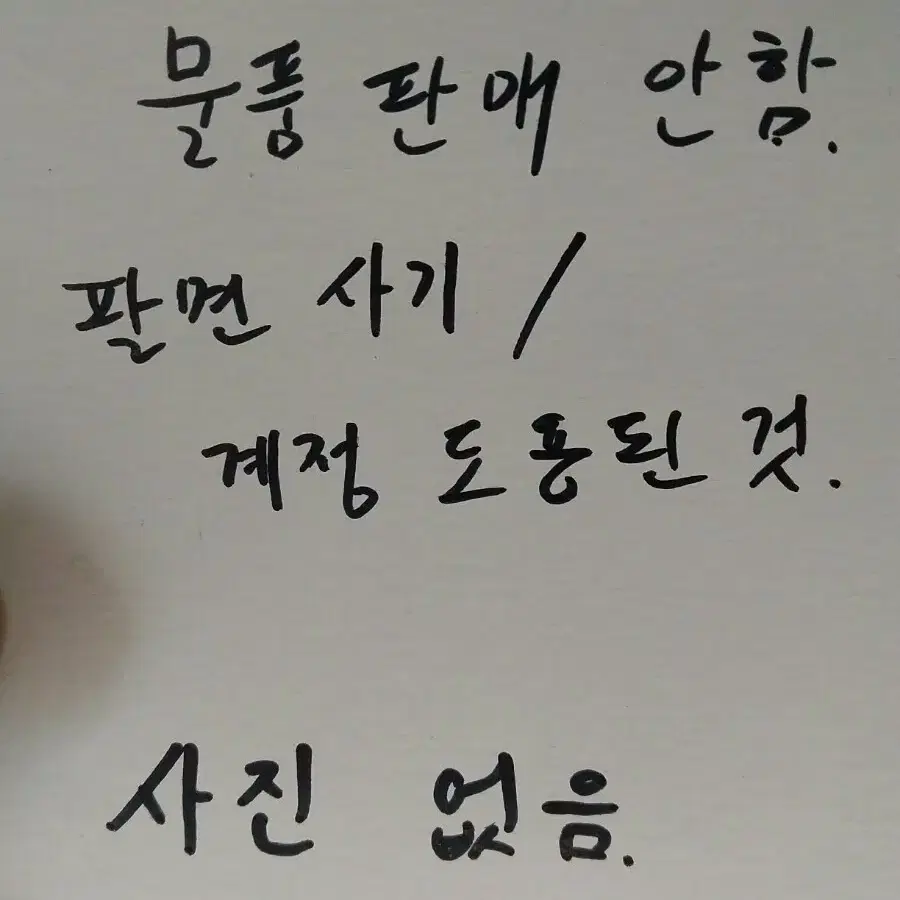 물품 판매 안함.
팔면 사기 /
계정 도용된 것.
사진 없음.